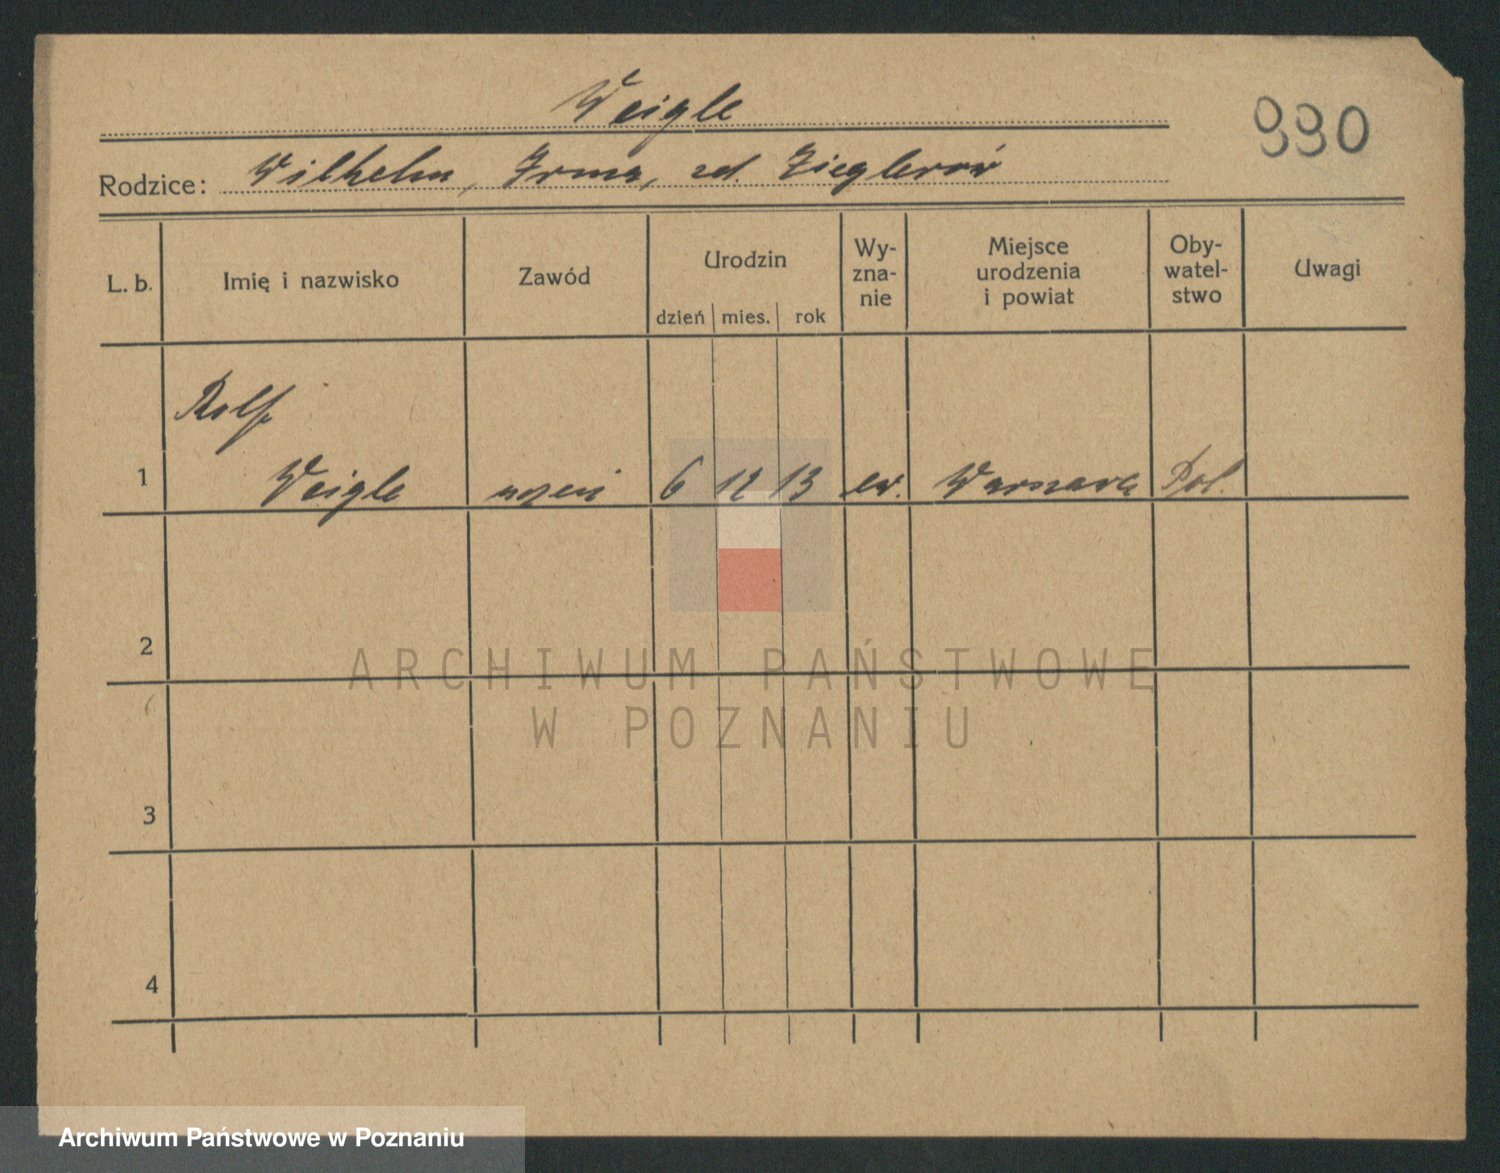 Weigle
990
Rodzice: Wilhelm, Irma, zd. Zieglerów
L. b. Imię i nazwisko Zawód Urodzin Wy-zna-nie Miejsce urodzenia i powiat Oby-watel-stwo Uwagi
dzień mies. rok
Rolf
1 Weigle uczeń 6 12 13 ew. Warszawa Pol.
2
ARCHIWUM PAŃSTWOWE
W POZNANIU
3
4
Archiwum Państwowe w Poznaniu